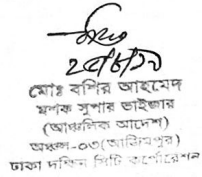 মোঃ বশির আহমেদ
মশক সুপার ভাইজার
(আঞ্চলিক আদেশ)
অঞ্চল-০৩(আজিমপুর)
ঢাকা দক্ষিণ সিটি কর্পোরেশন